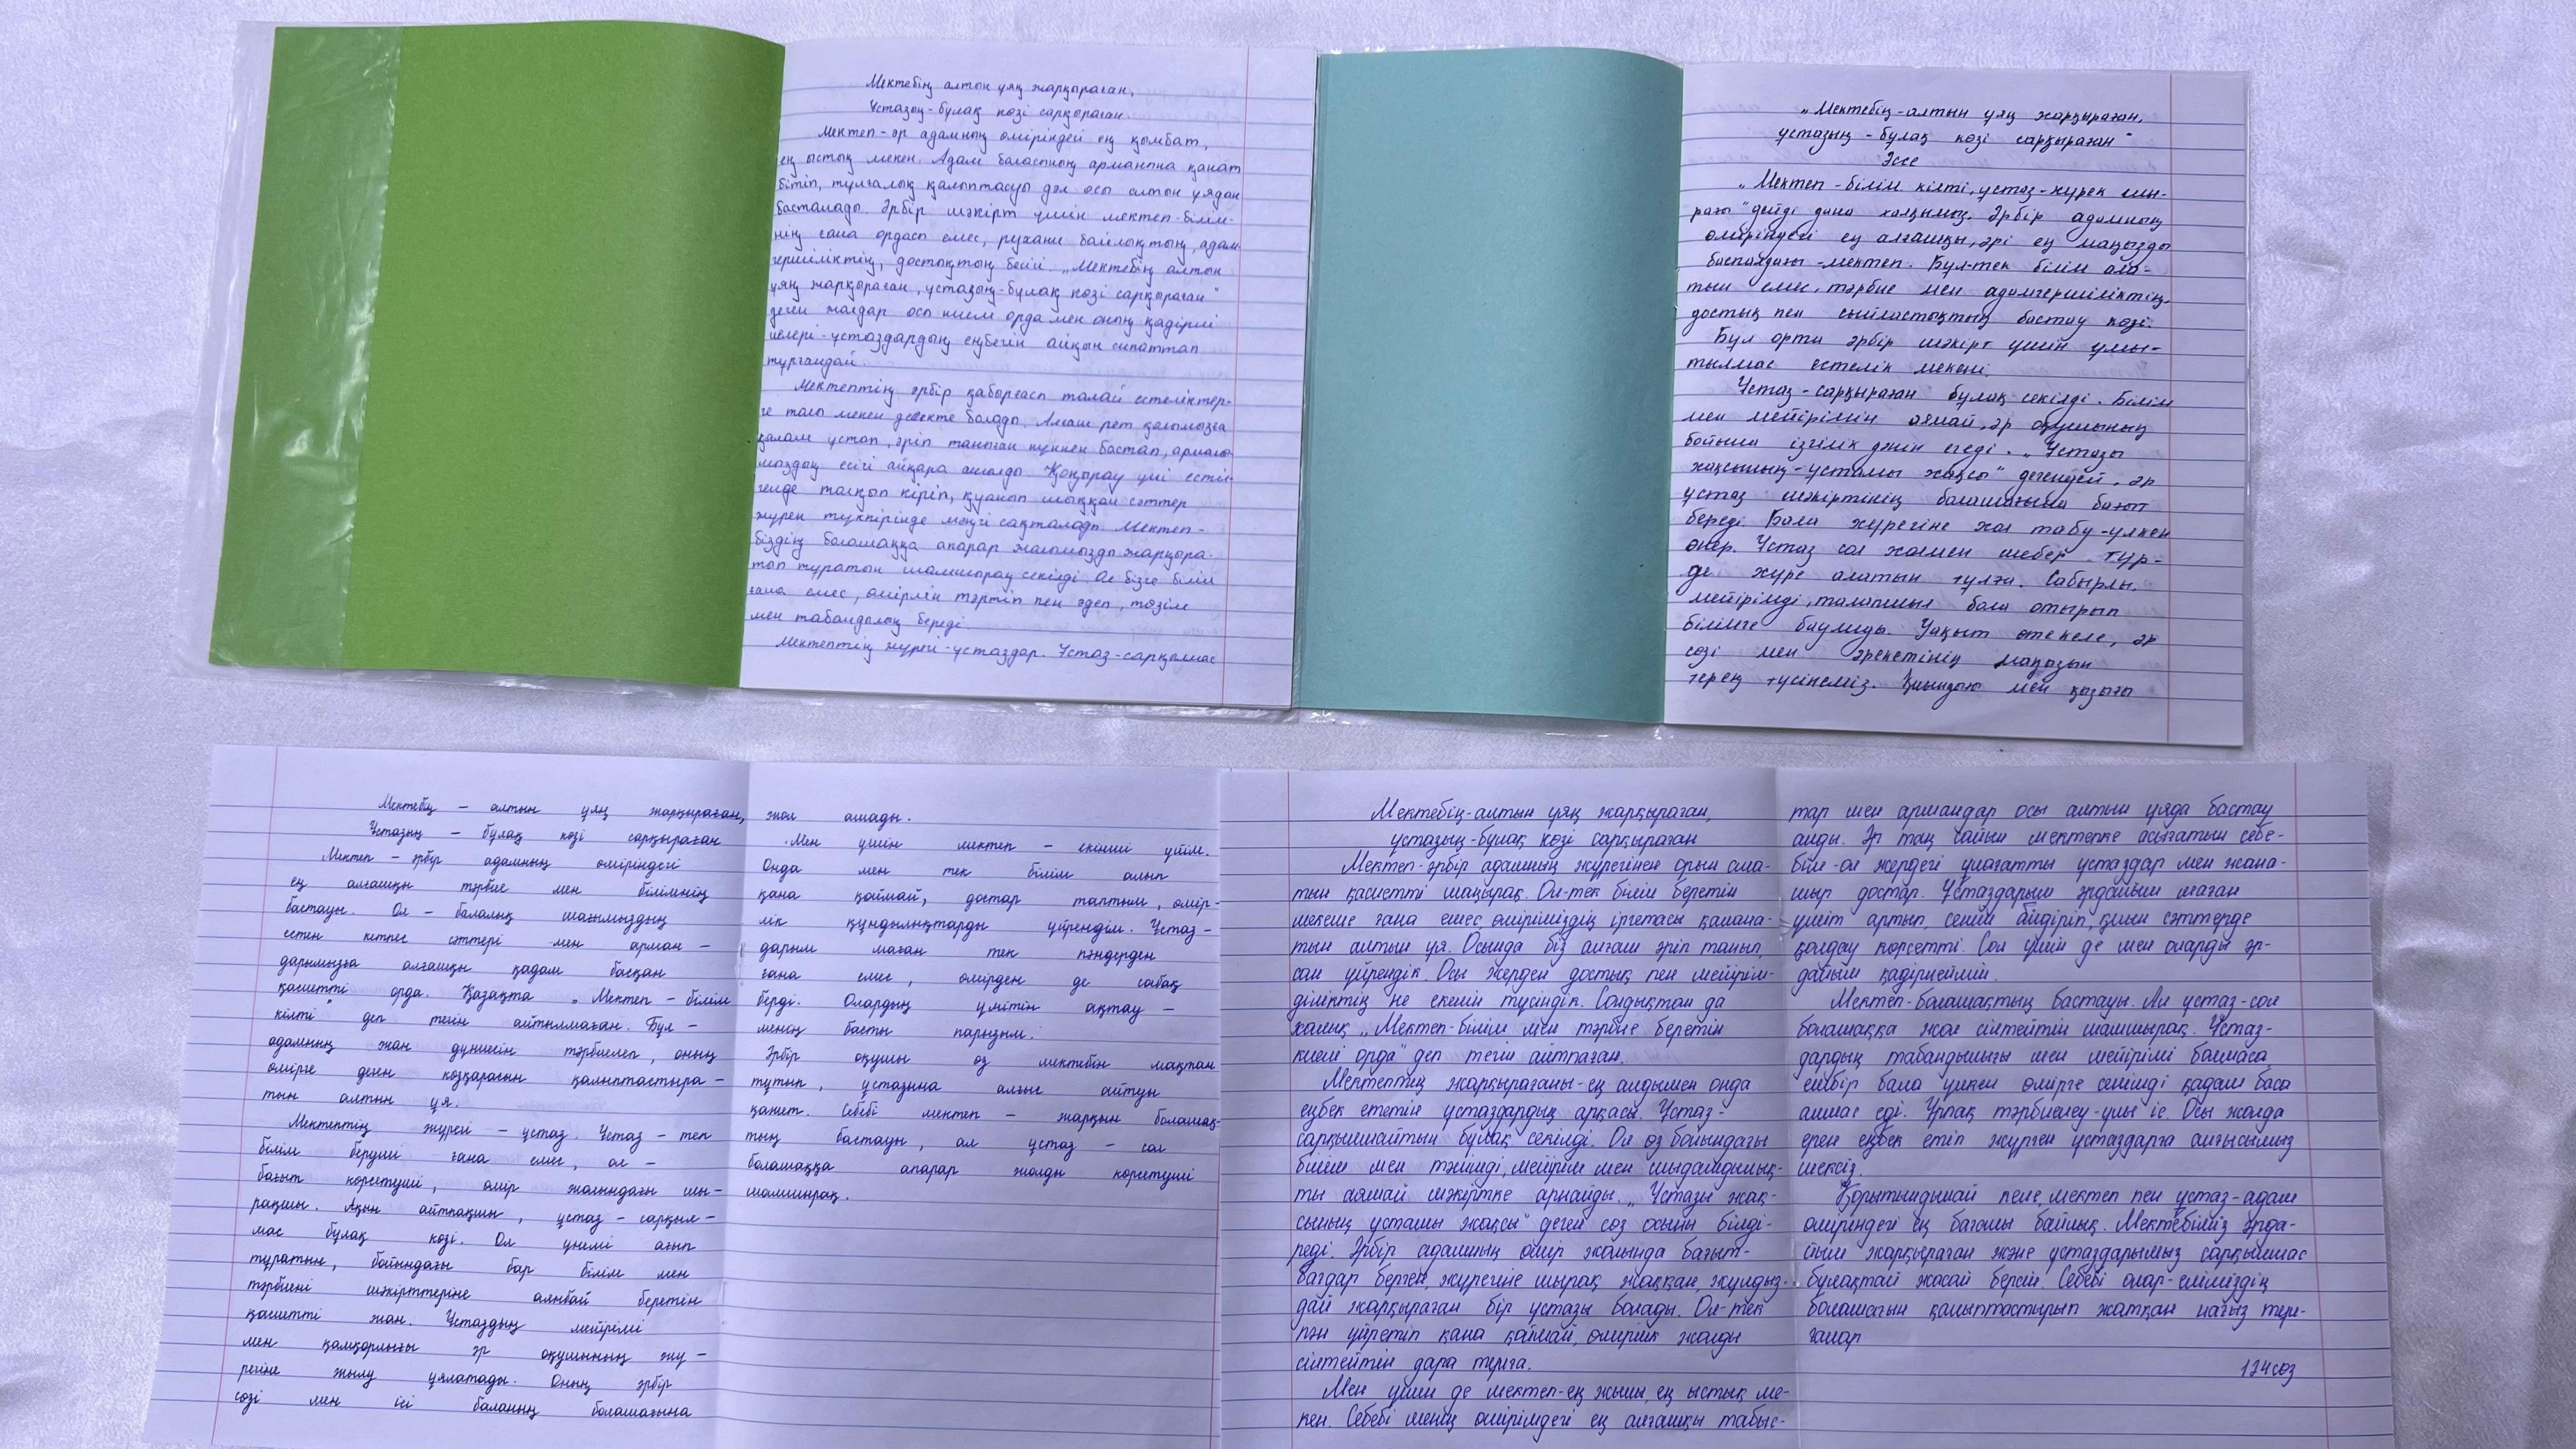 Мектебің алтын ұяң жарқыраған,
Ұстазың-бұлақ көзі сарқыраған.
Мектеп-әр адамның өміріндей ең қымбат,
ең ыстық мекен. Адам баласының арманына қанат
бітіп, тұлғалық қалыптасуы дәл осы алтын ұядан
басталады. Әрбір шәкірт үшін мектеп-білім-
нің ғана ордасы емес, рухани байлықтың, адам-
гершіліктің, достықтың бесігі. „Мектебің алтын
ұяң жарқыраған, ұстазың-бұлақ көзі сарқыраған"
деген жолдар осы киелі орда мен оның қадірлі
иелері-ұстаздардың еңбегін айқын сипаттап
тұрғандай.
Мектептің әрбір қабырғасы талай естеліктер-
ге толы мекен десекте болады. Алғаш рет қолымызға
қалам ұстап, әріп таныған күннен бастап, арманы-
мыздың есігі айқара ашылды. Қоңырау үні естіл-
генде толқып кіріп, қуанып шыққан сәттер
жүрек түкпірінде мәңгі сақталады. Мектеп-
біздің болашаққа апарар жолымызды жарқыра-
тып тұратын шамшырақ секілді. Ол бізге білім
ғана емес, өмірлік тәртіп пен әдеп, төзім
мен табандылық береді.
Мектептің жүрегі-ұстаздар. Ұстаз-сарқылмас
„Мектебің-алтын ұяң жарқыраған,
ұстазың-бұлақ көзі сарқыраған"
Эссе
„Мектеп-білім кілті, ұстаз-жүрек шы-
рағы" дейді дана халқымыз. Әрбір адамның
өміріндегі ең алғашқы, әрі ең маңызды
баспалдағы-мектеп. Бұл-тек білім ала-
тын емес, тәрбие мен адамгершіліктің,
достық пен сыйластықтың бастау көзі.
Бұл орта әрбір шәкірт үшін ұмы-
тылмас естелік мекені.
Ұстаз-сарқыраған бұлақ секілді. Білім
мен мейірімін аямай, әр оқушының
бойына ізгілік дәнін егеді. „Ұстазы
жақсының-ұстамы жақсы" дегендей, әр
ұстаз шәкіртінің болашағына бағыт
береді. Бала жүрегіне жол табу-үлкен
өнер. Ұстаз сол жолмен шебер түр-
де жүре алатын тұлға. Сабырлы,
мейірімді, талапшыл бола отырып
білімге баулиды. Уақыт өте келе, әр
сөзі мен әрекетінің маңызын
терең түсінеміз. Қиындығы мен қызығы
Мектебің – алтын ұяң жарқыраған,
Ұстазың – бұлақ көзі сарқыраған
Мектеп – әрбір адамның өміріндегі
ең алғашқы тәрбие мен білімнің
бастауы. Ол – балалық шағымыздың
естен кетпес сәттері мен арман –
дарымызға алғашқы қадам басқан
қасиетті орда. Қазақта „Мектеп – білім
кілті" деп тегін айтылмаған. Бұл –
адамның жан дүниесін тәрбиелеп, оның
өмірге деген көзқарасын қалыптастыра –
тын алтын ұя.
Мектептің жүрегі – ұстаз. Ұстаз – тек
білім беруші ғана емес, ол –
бағыт көрсетуші, өмір жолындағы шы-
рақшы. Ақын айтпақшы, ұстаз – сарқыл –
мас бұлақ көзі. Ол үнемі ағып
тұратын, бойындағы бар білім мен
тәрбиені шәкірттеріне аянбай беретін
қасиетті жан. Ұстаздың мейірімі
мен қамқорлығы әр оқушының жү –
регіне жылу ұялатады. Оның әрбір
сөзі мен ісі баланың болашағына
жол ашады.
Мен үшін мектеп – екінші үйім.
Онда мен тек білім алып
қана қоймай, достар таптым, өмір-
лік құндылықтарды үйрендім. Ұстаз –
дарым маған тек пәндерден
ғана емес, өмірден де сабақ
берді. Олардың үмітін ақтау –
менің басты парызым.
Әрбір оқушы өз мектебін мақтан
тұтып, ұстазына алғыс айтуы
қажет. Себебі мектеп – жарқын болашақ-
тың бастауы, ал ұстаз – сол
болашаққа апарар жолды көрсетуші
шамшырақ.
Мектебің-алтын ұяң жарқыраған,
ұстазың-бұлақ көзі сарқыраған
Мектеп-әрбір адамның жүрегінен орын ала-
тын қасиетті шаңырақ. Ол-тек білім беретін
мекеме ғана емес, өміріміздің іргетасы қалана-
тын алтын ұя. Осында біз алғаш әріп танып,
сан үйрендік. Осы жерден достық пен мейірім-
діліктің не екенін түсіндік. Сондықтан да
халық „Мектеп-білім мен тәрбие беретін
киелі орда" деп тегін айтпаған.
Мектептің жарқырағаны-ең алдымен онда
еңбек ететін ұстаздардың арқасы. Ұстаз-
сарқылмайтын бұлақ секілді. Ол өз бойындағы
білім мен тәлімді, мейірім мен шыдамдылық-
ты аямай шәкіртке арнайды. „Ұстазы жақ-
сының ұстамы жақсы" деген сөз осыны білді-
реді. Әрбір адамның өмір жолында бағыт-
бағдар берген, жүрегіне шырақ жаққан, жұлдыз-
дай жарқыраған бір ұстазы болады. Ол-тек
пән үйретіп қана қоймай, өмірлік жолды
сілтейтін дара тұлға.
Мен үшін де мектеп-ең жылы, ең ыстық ме-
кен. Себебі менің өмірімдегі ең алғашқы табыс-
тар мен армандар осы алтын ұяда бастау
алды. Әр таң сайын мектепке асығатын себе-
бім-ол жердегі ұлағатты ұстаздар мен жана-
шыр достар. Ұстаздарым әрдайым маған
үміт артып, сенім білдіріп, қиын сәттерде
қолдау көрсетті. Сол үшін де мен оларды әр-
дайым қадірлеймін.
Мектеп-болашақтың бастауы. Ал ұстаз-сол
болашаққа жол сілтейтін шамшырақ. Ұстаз-
дардың табандылығы мен мейірімі болмаса
ешбір бала үлкен өмірге сенімді қадам баса
алмас еді. Ұрпақ тәрбиелеу-ұлы іс. Осы жолда
ерен еңбек етіп жүрген ұстаздарға алғысымыз
шексіз.
Қорытындылай келе, мектеп пен ұстаз-адам
өміріндегі ең бағалы байлық. Мектебіміз әрда-
йым жарқыраған және ұстаздарымыз сарқылмас
бұлақтай жасай берсін. Себебі олар-еліміздің
болашағын қалыптастырып жатқан нағыз тұл-
ғалар
174 сөз